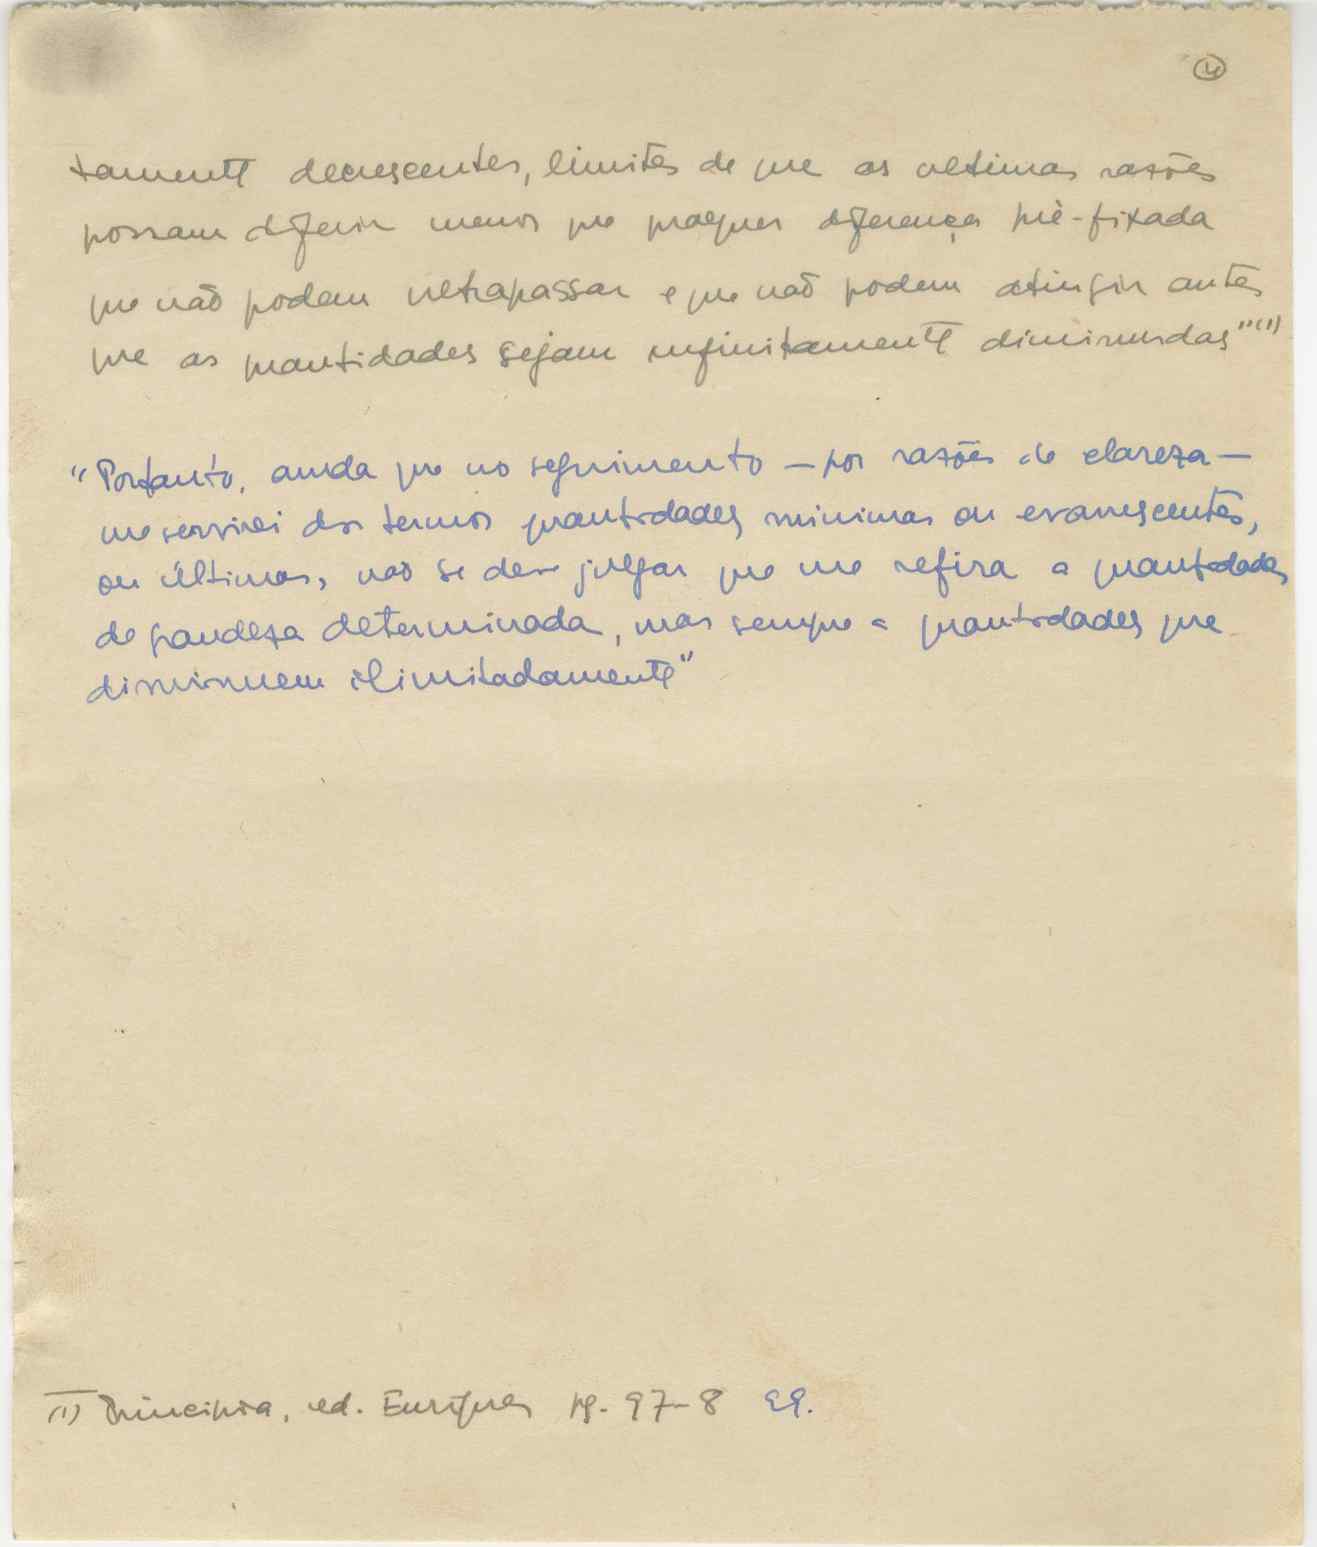 4
tamente decrescentes, limites de que as ultimas razões
possam diferir menos que qualquer diferença pré-fixada
que não podem ultrapassar e que não podem atingir antes
que as quantidades sejam infinitamente diminuidas" (1)
"Portanto, ainda que no seguimento – por razões de clareza –
me servirei dos termos quantidades minimas ou evanescentes,
ou últimas, não se deve julgar que me refira a quantidades
de grandeza determinada, mas sempre a quantidades que
diminuem ilimitadamente"
(1) Principia, ed. Enriques pg. 97-8 99.